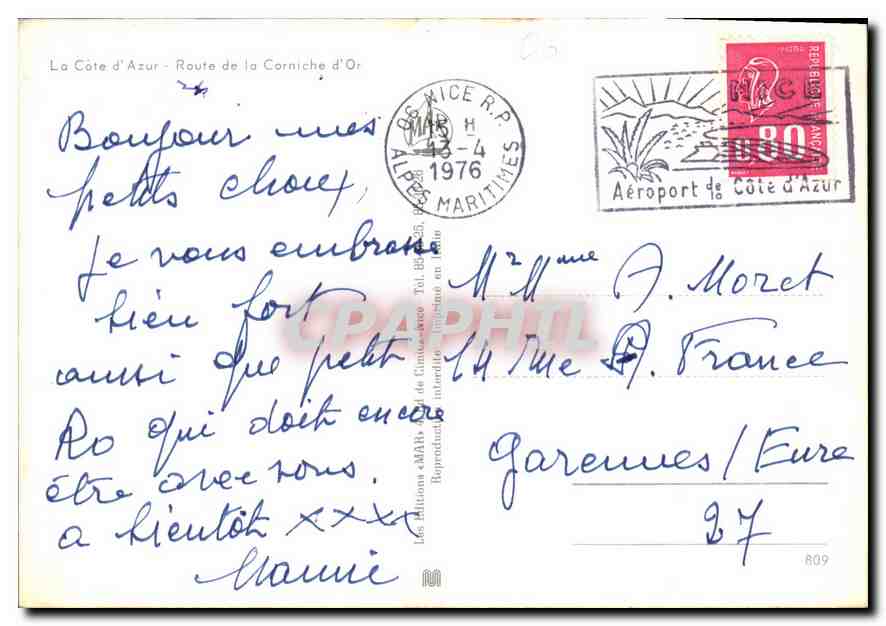 La Côte d'Azur - Route de la Corniche d'Or
Bonjour mes
petits choux,
Je vous embrasse
bien fort
aussi que petit
Ro qui doit encore
être avec vous.
a bientôt xxxx
Mamie
06 NICE R.P.
15 H
13-4
1976
ALPES MARITIMES
NICE
Aéroport de la Côte d'Azur
REPUBLIQUE FRANÇAISE
0,80
Mr Mme A. Moret
14 rue A. France
Garennes/Eure
27
809
Les Editions «MAR»
de Cimiez-Nice - Tél.
Reproduction interdite - Imprimé en Italie
CPAPHIL